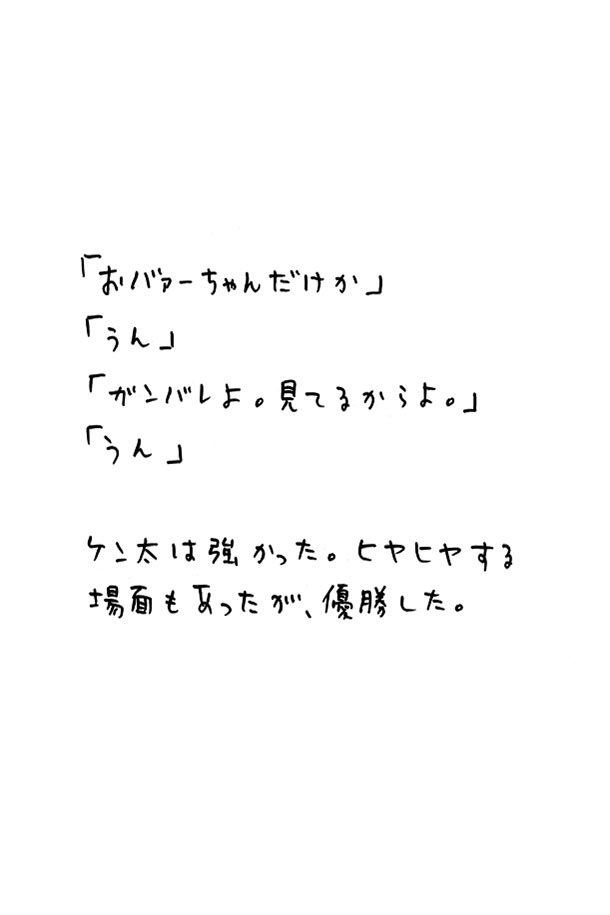 「おバァーちゃんだけか」
「うん」
「ガンバレよ。見てるからよ。」
「うん」
ケン太は強かった。ヒヤヒヤする
場面もあったが、優勝した。